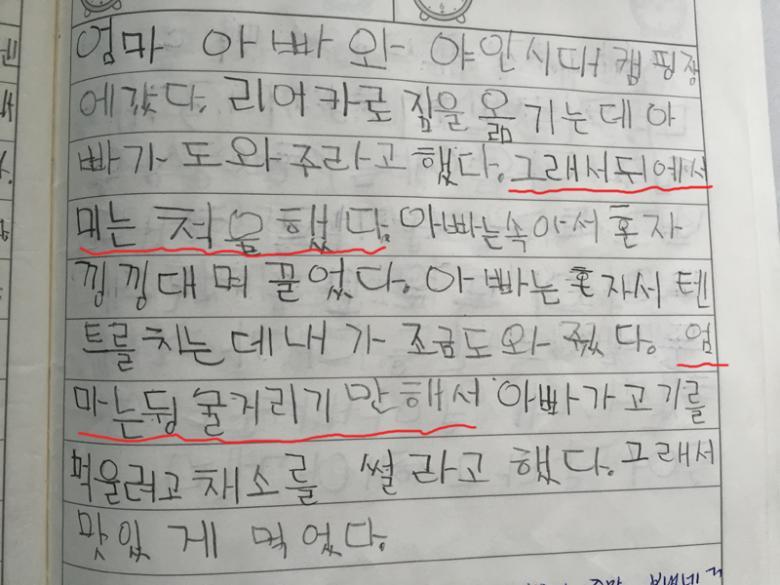 엄마 아빠와 야인시대 캠핑장
에갔다. 리어카로 짚을 옮기는데 아
빠가 도와주라고 했다. 그래서 뒤에서
미는 척을 했다. 아빠는 속아서 혼자
낑낑대며 끌었다. 아빠는 혼자서 텐
트를 치는데 내가 조금 도와줬다. 엄
마는 뒹굴거리기만 해서 아빠가 고기를
먹을려고 채소를 썰라고 했다. 그래서
맛있게 먹었다.